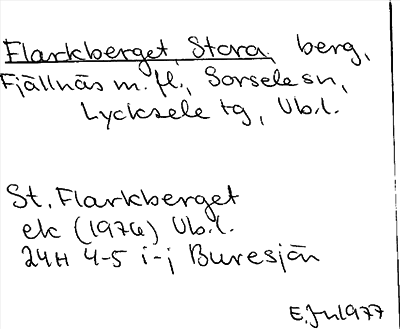 Flarkberget, Stora, berg,
Fjällnäs m. fl., Sorsele sn,
Lycksele tg, Vb.l.
St. Flarkberget
ek (1976) Vb.l.
24H 4-5 i-j Buresjön
1977